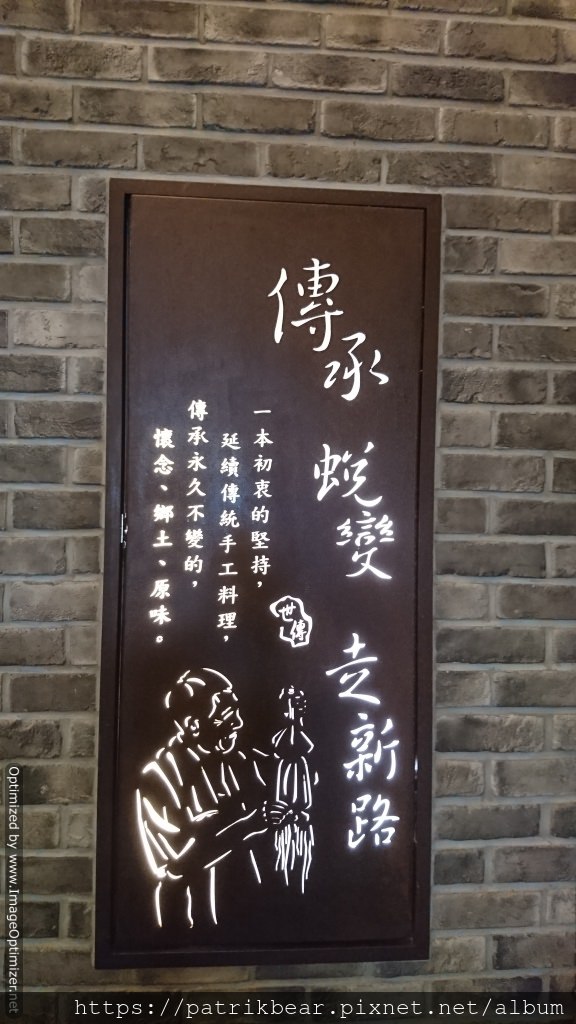 傳承 蛻變 走新路
一本初衷的堅持，
延續傳統手工料理，
傳承永久不變的，
懷念、鄉土、原味。
世傳
Optimized by www.ImageOptimizer.net
https://patrikbear.pixnet.net/album